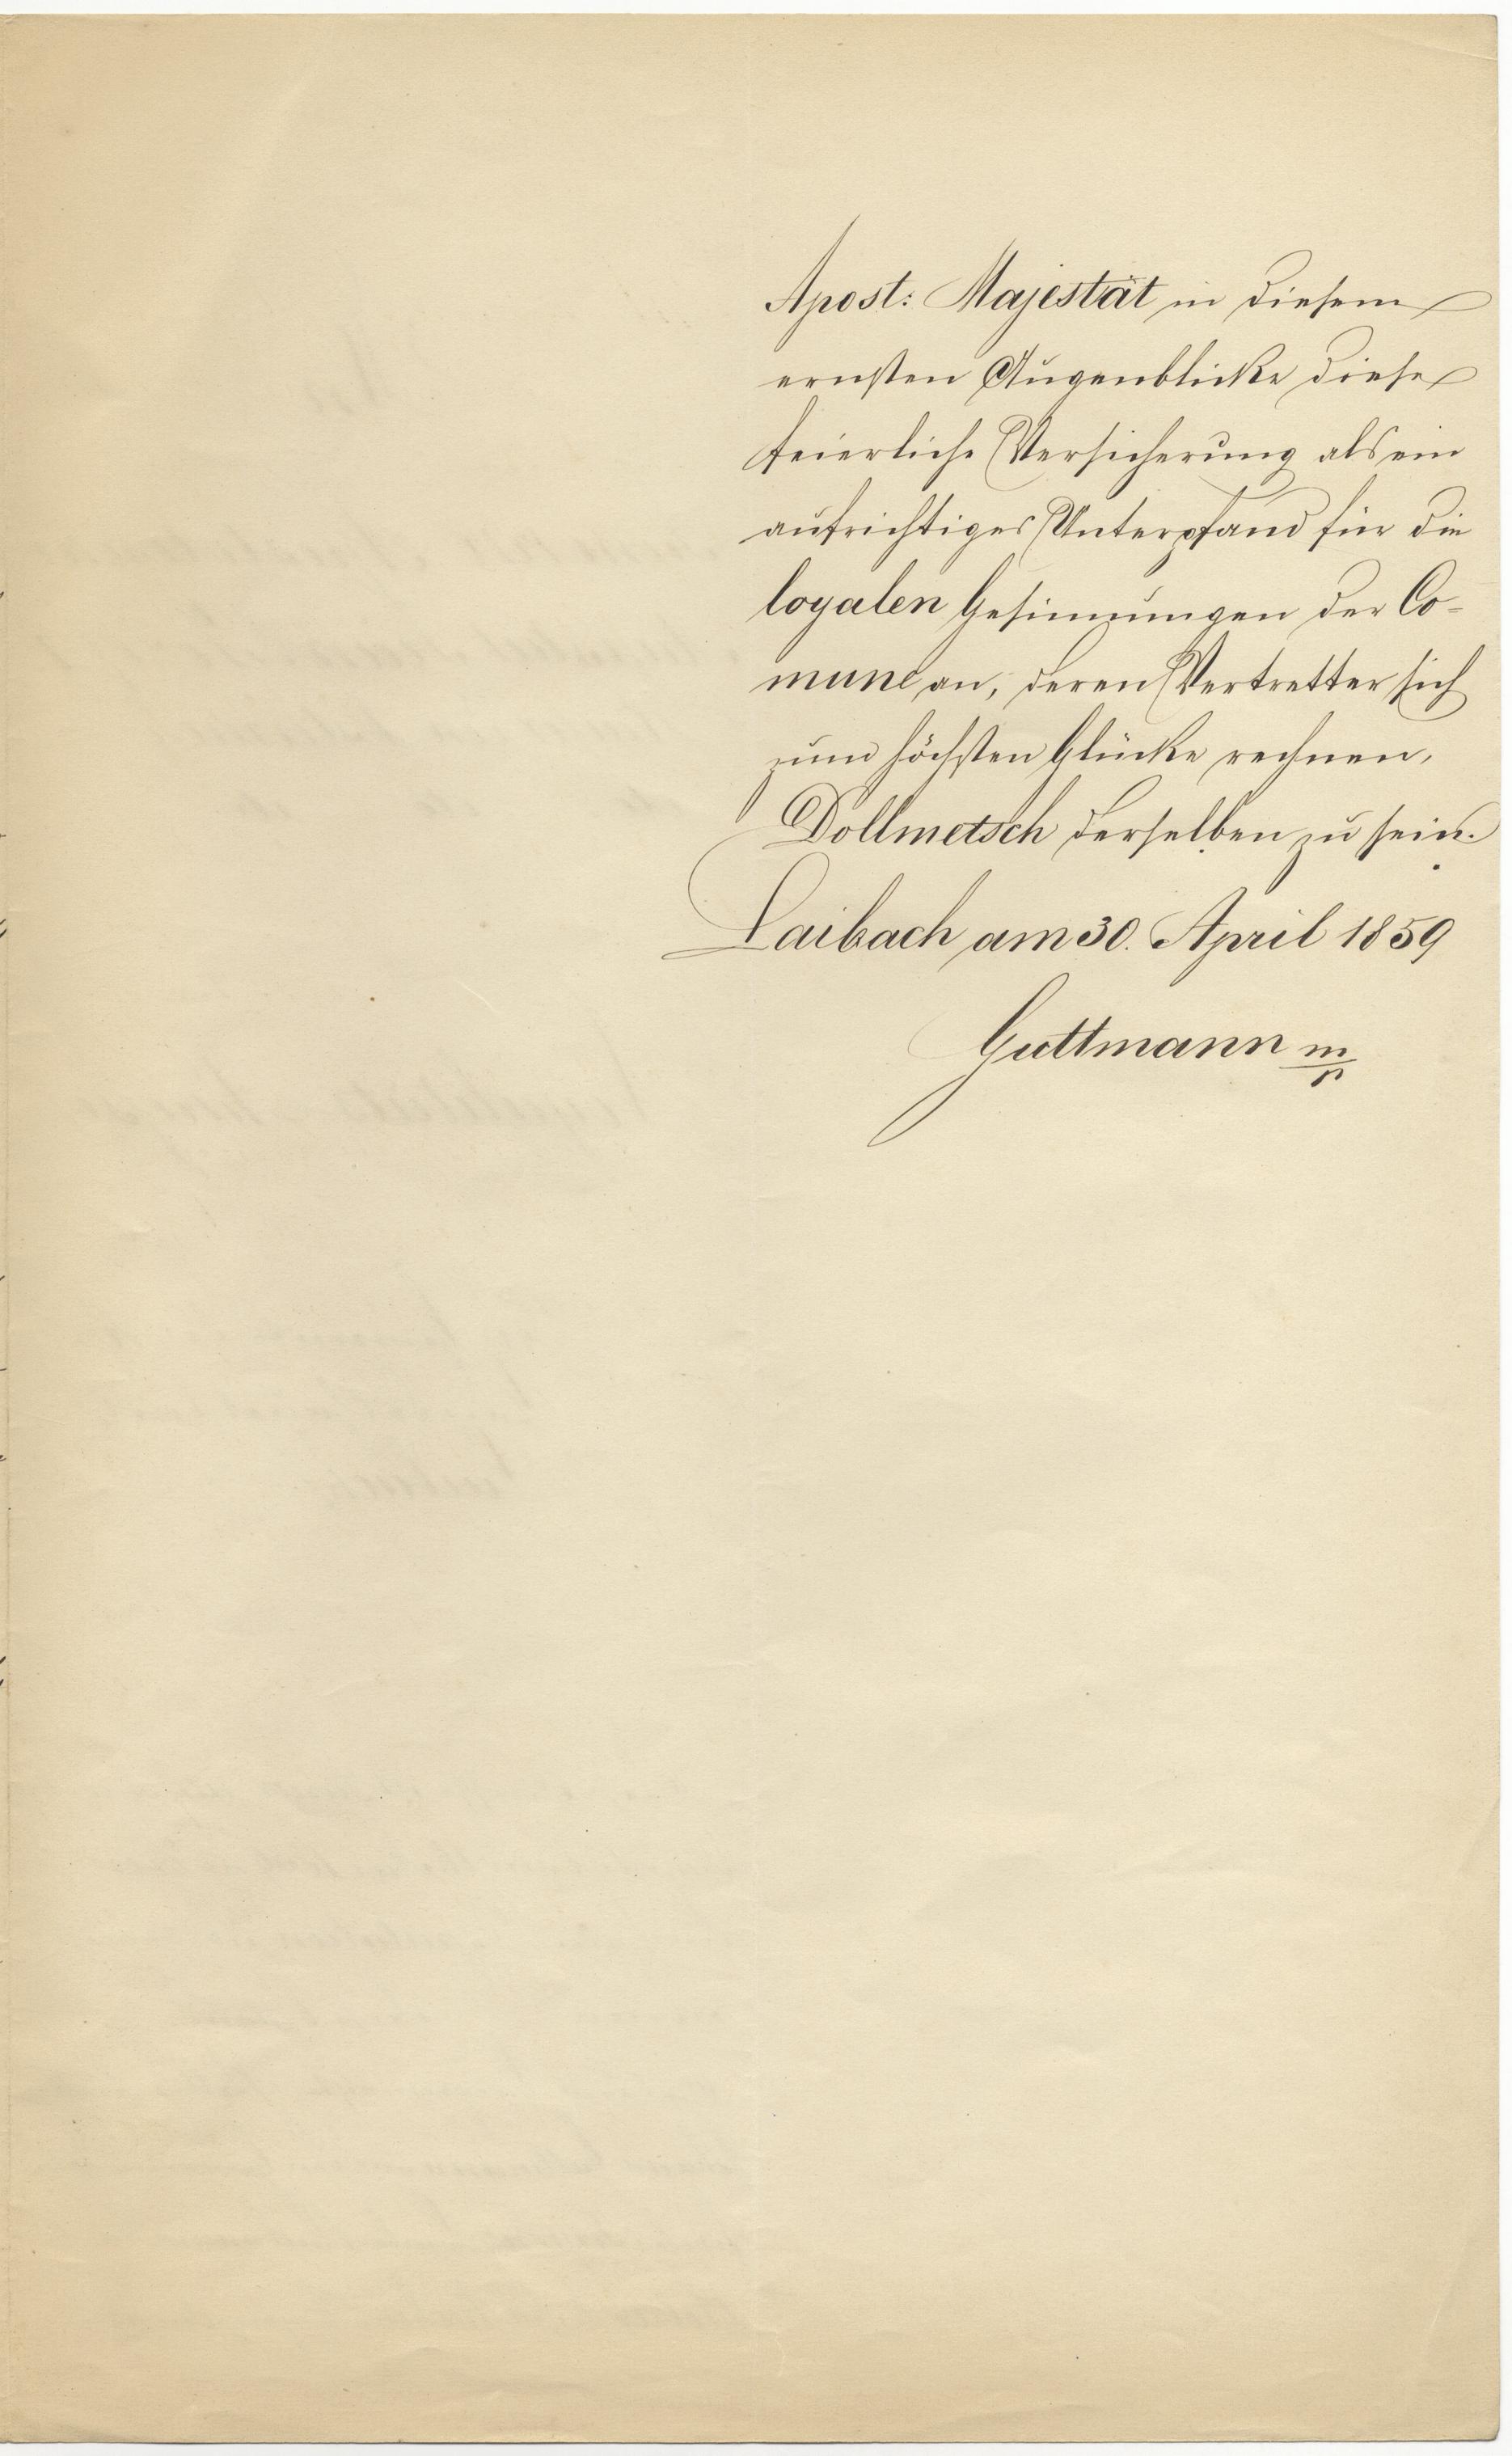 Apost: Majestät in diesem
ernsten Augenblicke diese
feierliche Versicherung als ein
aufrichtiges Unterpfand für die
loyalen Gesinnungen der Co-
mune an, deren Vertretter sich
zum höchsten Glücke rechnen,
Dollmetsch derselben zu sein.
Laibach am 30. April 1859
Guttmann m/p